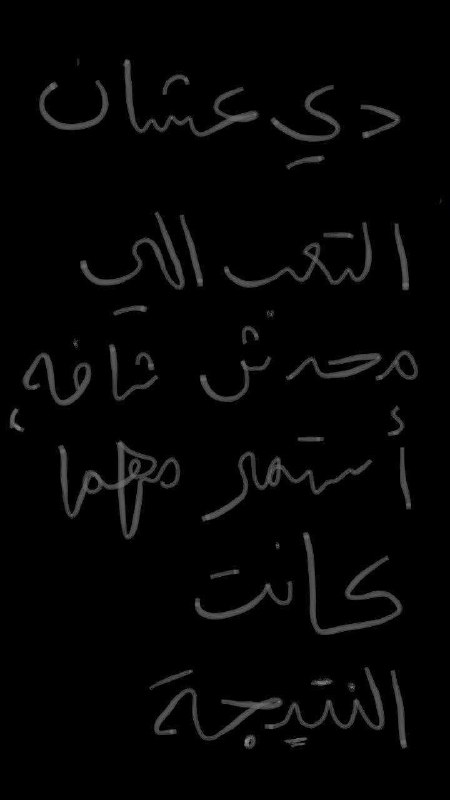 دي عشان
التعب اللي
محدش شافه،
أستمر مهما
كانت
النتيجة